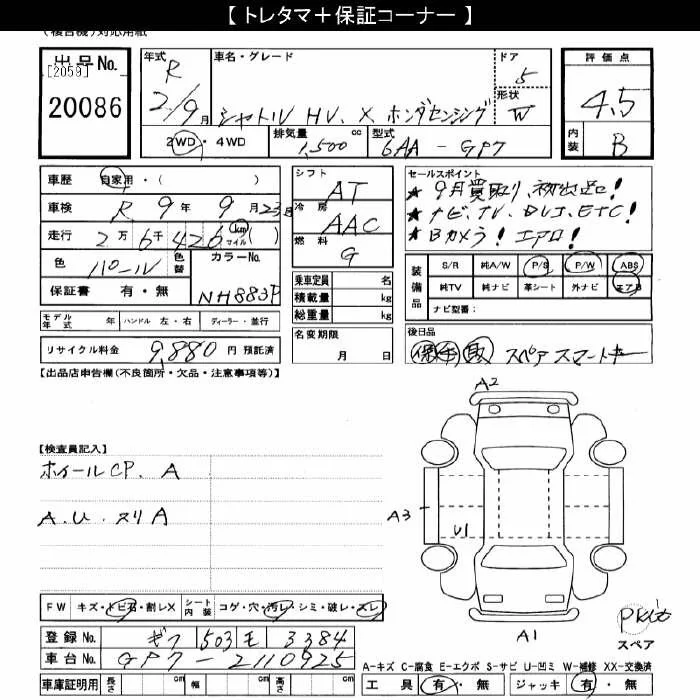 【 トレタマ＋保証コーナー 】
(複合機)対応用紙
出品No.
[2059]
20086
年式 R 2/9月
車名・グレード
シャトル HV. X ホンダセンシング
ドア 5
形状 W
評価点 4.5
内装 B
2WD・4WD
排気量 1,500 cc
型式 6AA - GP7
車歴 自家用・( )
車検 R 9年 9月23日
走行 2万 6千 426 km マイル ( )
色 パール 色替
カラーNo. NH883P
保証書 有・無
モデル年式 年 ハンドル 左・右 ディーラー・並行
リサイクル料金 9,880 円 預託済
シフト AT
冷房 AAC
燃料 G
乗車定員 名
積載量 kg
総重量 kg
名変期限
月 日
セールスポイント
★ 9月買取り、初出品!
★ ナビ、TV、DVD、ETC!
★ Bカメラ! エアロ!
装備品
S/R 純A/W P/S P/W ABS
純TV 純ナビ 革シート 外ナビ エアB
ナビ型番:
後日品
保 手 取 スペアスマートキー
【出品店申告欄(不良箇所・欠品・注意事項等)】
【検査員記入】
ホイールCP. A
A.U.スリA
A2
A3
U1
A1
FW キズ・トビ石・割レX
シート内装 コゲ・穴・汚レ・シミ・破レ・スレ
登録No. ギフ 503 モ 3384
車台No. GP7-2110925
車庫証明用 長さ cm 幅 cm 高さ cm
Pkit
スペア
A-キズ C-腐食 E-エクボ S-サビ U-凹ミ W-補修 XX-交換済
工具 有・無 ジャッキ 有・無